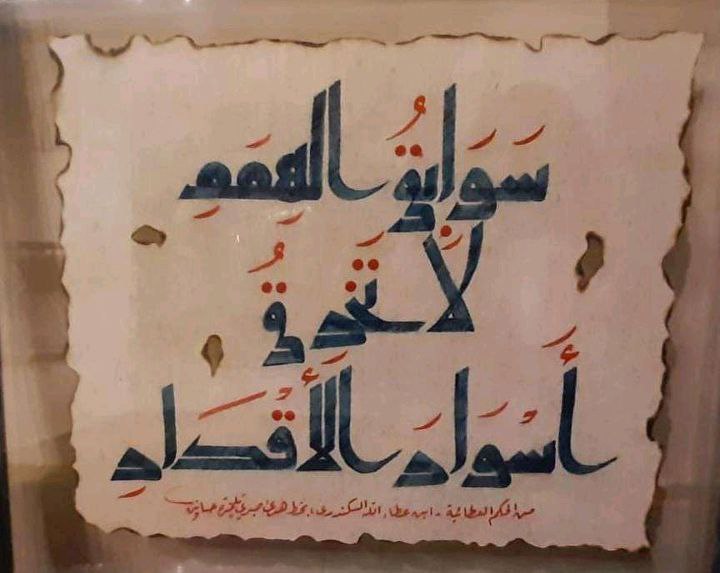 سَوَابِقُ الهِمَمِ
لَا تَخْرِقُ
أَسْوَارَ الأَقْدَارِ
من الحكم العطائية - ابن عطاء الله السكندري، بخط